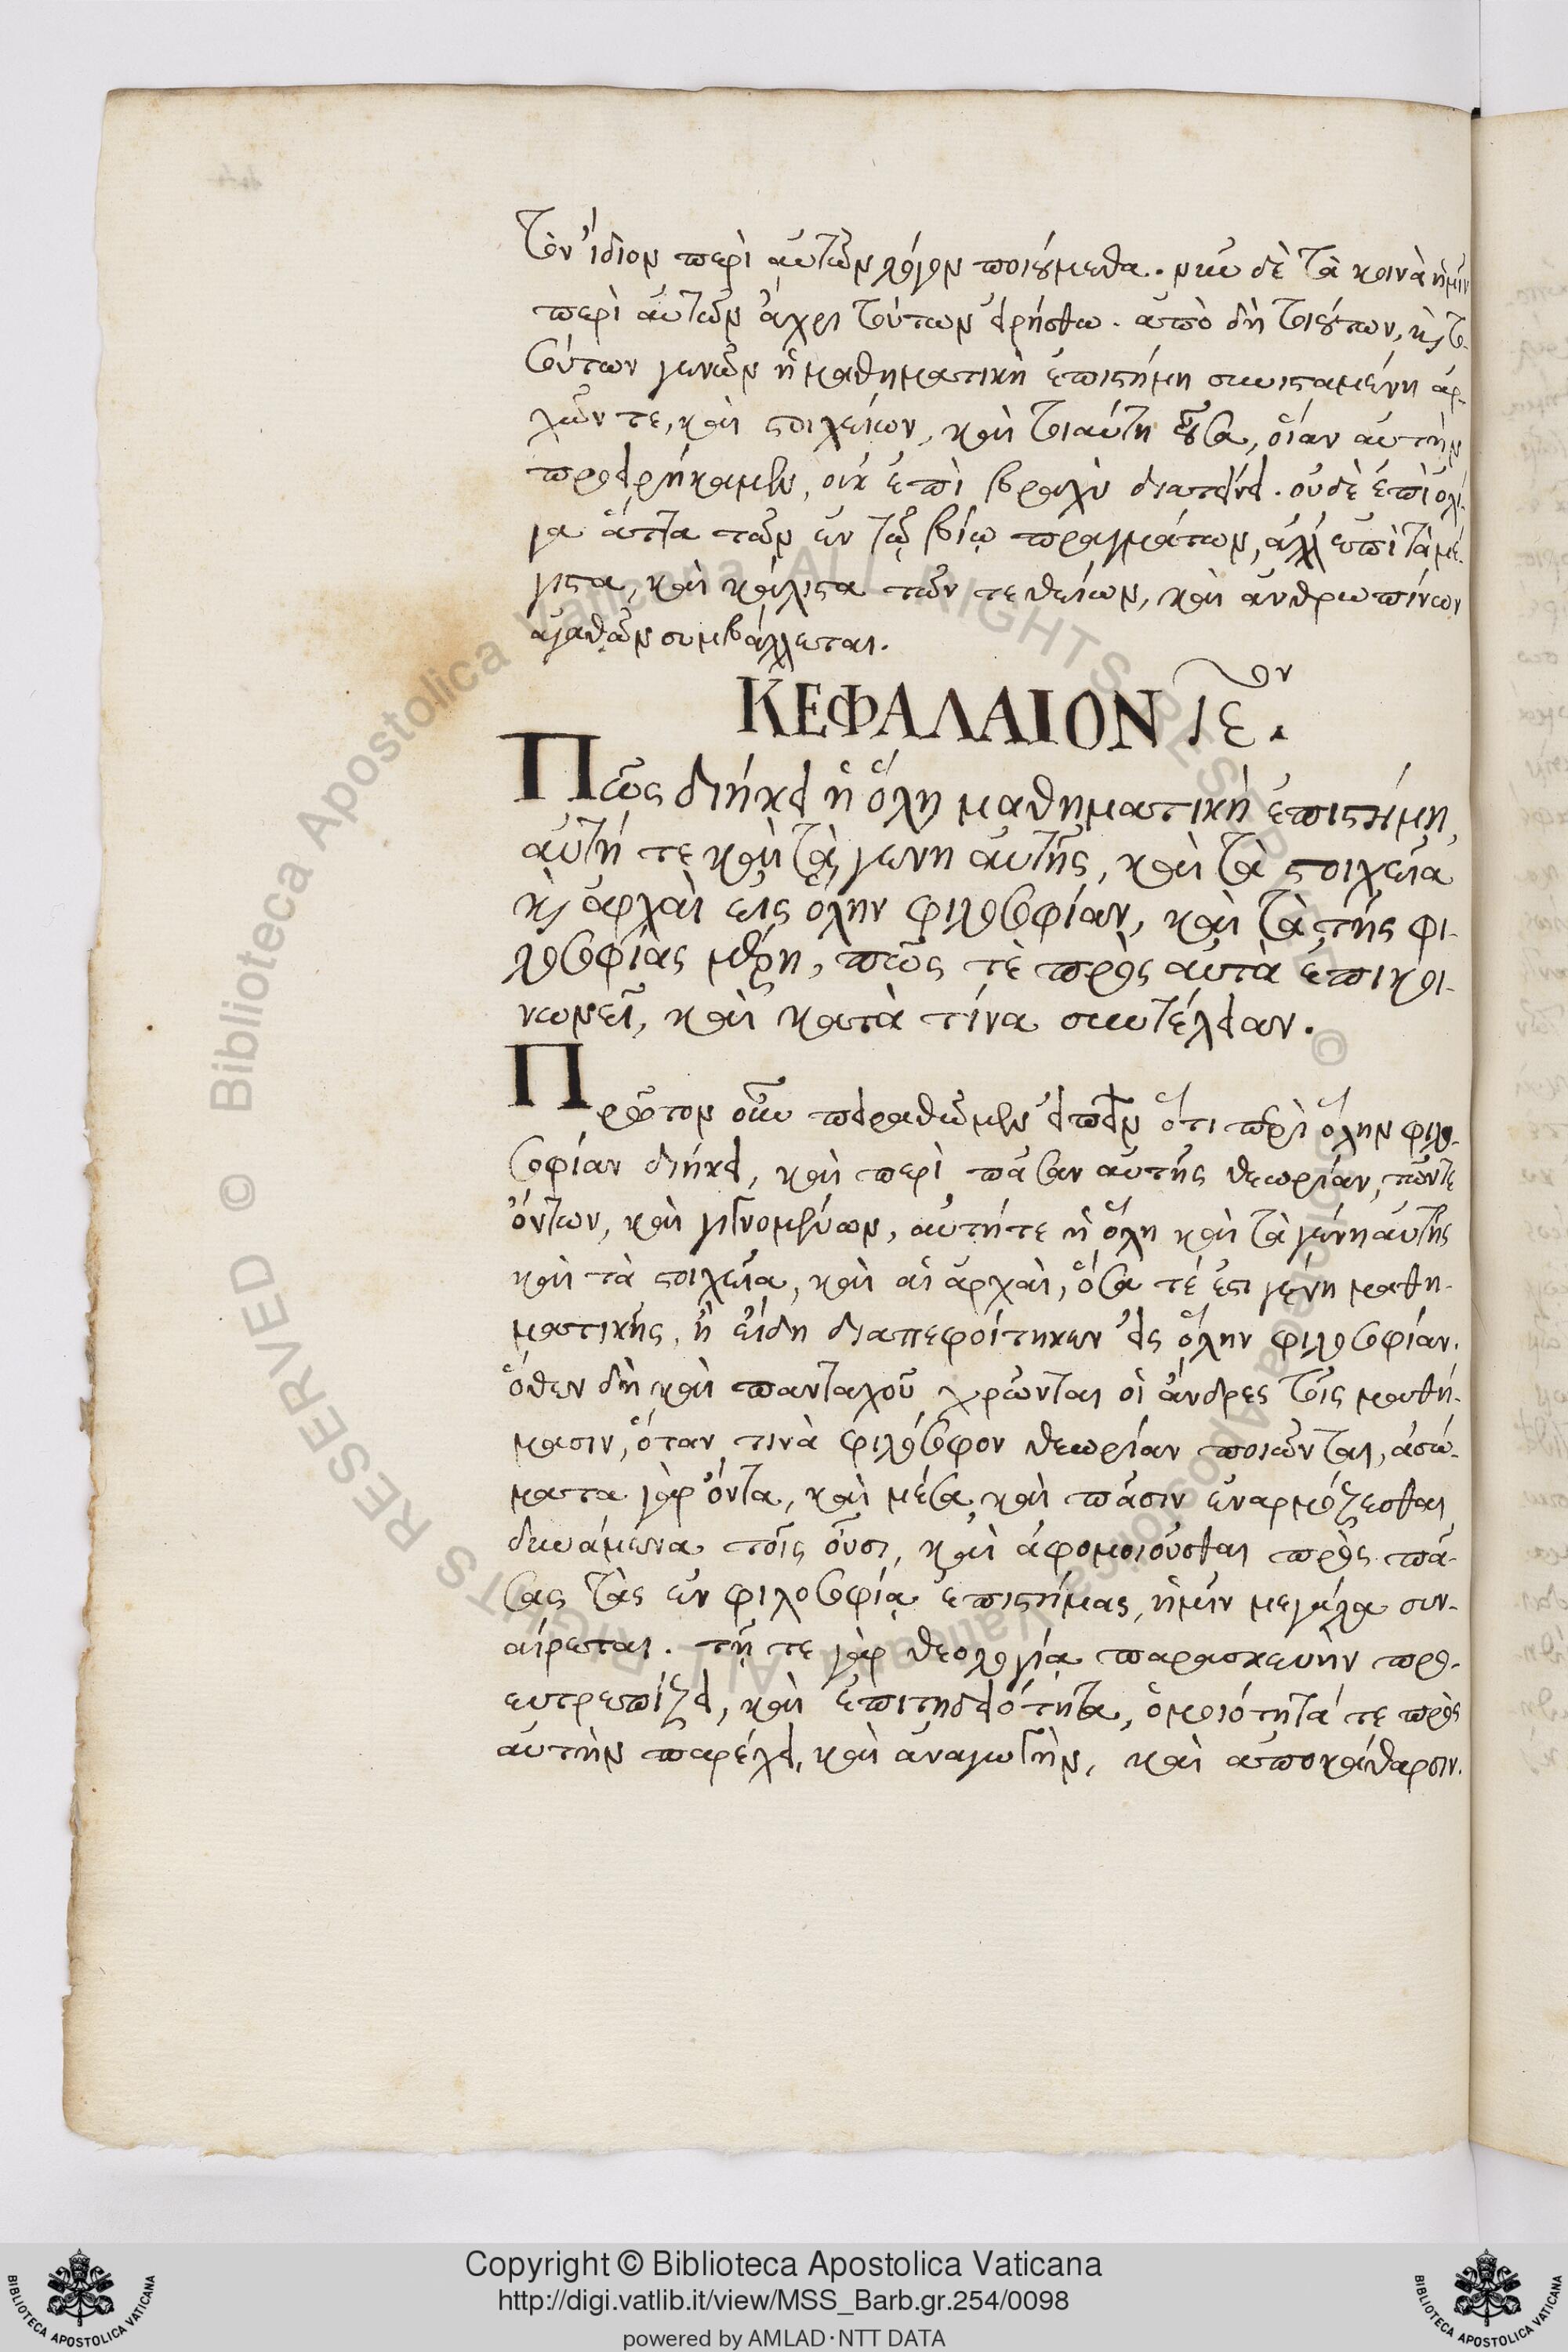 τὸν ἴδιον περὶ αὐτῶν λόγον ποιούμεθα. νῦν δὲ τὰ κοινὰ ἡμῖν
περὶ αὐτῶν ἄχρι τούτων εἰρήσθω. ἀπὸ δὴ τοιούτων, καὶ το-
σούτων γενῶν ἡ μαθηματικὴ ἐπιστήμη συνισταμένη ἀρ-
χῶν τε, καὶ στοιχείων, καὶ τοιαύτη οὖσα, οἵαν αὐτὴν
προειρήκαμεν, οὐκ ἐπὶ βραχὺ διατείνει. οὐδὲ ἐπὶ ὀλί-
γα ἄττα τῶν ἐν τῷ βίῳ πραγμάτων, ἀλλ' ἐπὶ τὰ μέ-
γιστα, καὶ κάλλιστα τῶν τε θείων, καὶ ἀνθρωπίνων
ἀγαθῶν συμβάλλεται.
ΚΕΦΑΛΑΙΟΝ ιε ον.
Πῶς διήκει ἡ ὅλη μαθηματικὴ ἐπιστήμη,
αὐτή τε καὶ τὰ γένη αὐτῆς, καὶ τὰ στοιχεῖα
καὶ ἀρχαὶ εἰς ὅλην φιλοσοφίαν, καὶ τὰ τῆς φι-
λοσοφίας μέρη, πῶς τὲ πρὸς αὐτὰ ἐπικοι-
νωνεῖ, καὶ κατὰ τίνα συντέλειαν.
Πρῶτον οὖν πειραθῶμεν εἰπεῖν ὅτι περὶ ὅλην φιλο-
σοφίαν διήκει, καὶ περὶ πᾶσαν αὐτῆς θεωρίαν, τῶν τε
ὄντων, καὶ γιγνομένων, αὐτή τε ἡ ὅλη καὶ τὰ γένη αὐτῆς
καὶ τὰ στοιχεῖα, καὶ αἱ ἀρχαὶ, ὅσα τέ ἐστι γένη μαθη-
ματικῆς, ἢ εἴδη διαπεφοίτηκεν εἰς ὅλην φιλοσοφίαν.
ὅθεν δὴ καὶ πανταχοῦ χρῶνται οἱ ἄνδρες τοῖς μαθή-
μασιν, ὅταν τινὰ φιλόσοφον θεωρίαν ποιῶνται, ἀσώ-
ματα γὰρ ὄντα, καὶ μέσα καὶ πᾶσιν ἐναρμόζεσθαι
δυνάμενα τοῖς οὖσι, καὶ ἀφομοιοῦσθαι πρὸς πά-
σας τὰς ἐν φιλοσοφίᾳ ἐπιστήμας, ἡμῖν μεγάλα συν-
αίρεται. τῇ τε γὰρ θεολογίᾳ παρασκευὴν προ-
ευτρεπίζει, καὶ ἐπιτηδειότητα, ὁμοιότητά τε πρὸς
αὐτὴν παρέχει, καὶ ἀναγωγὴν, καὶ ἀποκάθαρσιν.
Copyright © Biblioteca Apostolica Vaticana
http://digi.vatlib.it/view/MSS_Barb.gr.254/0098
powered by AMLAD·NTT DATA